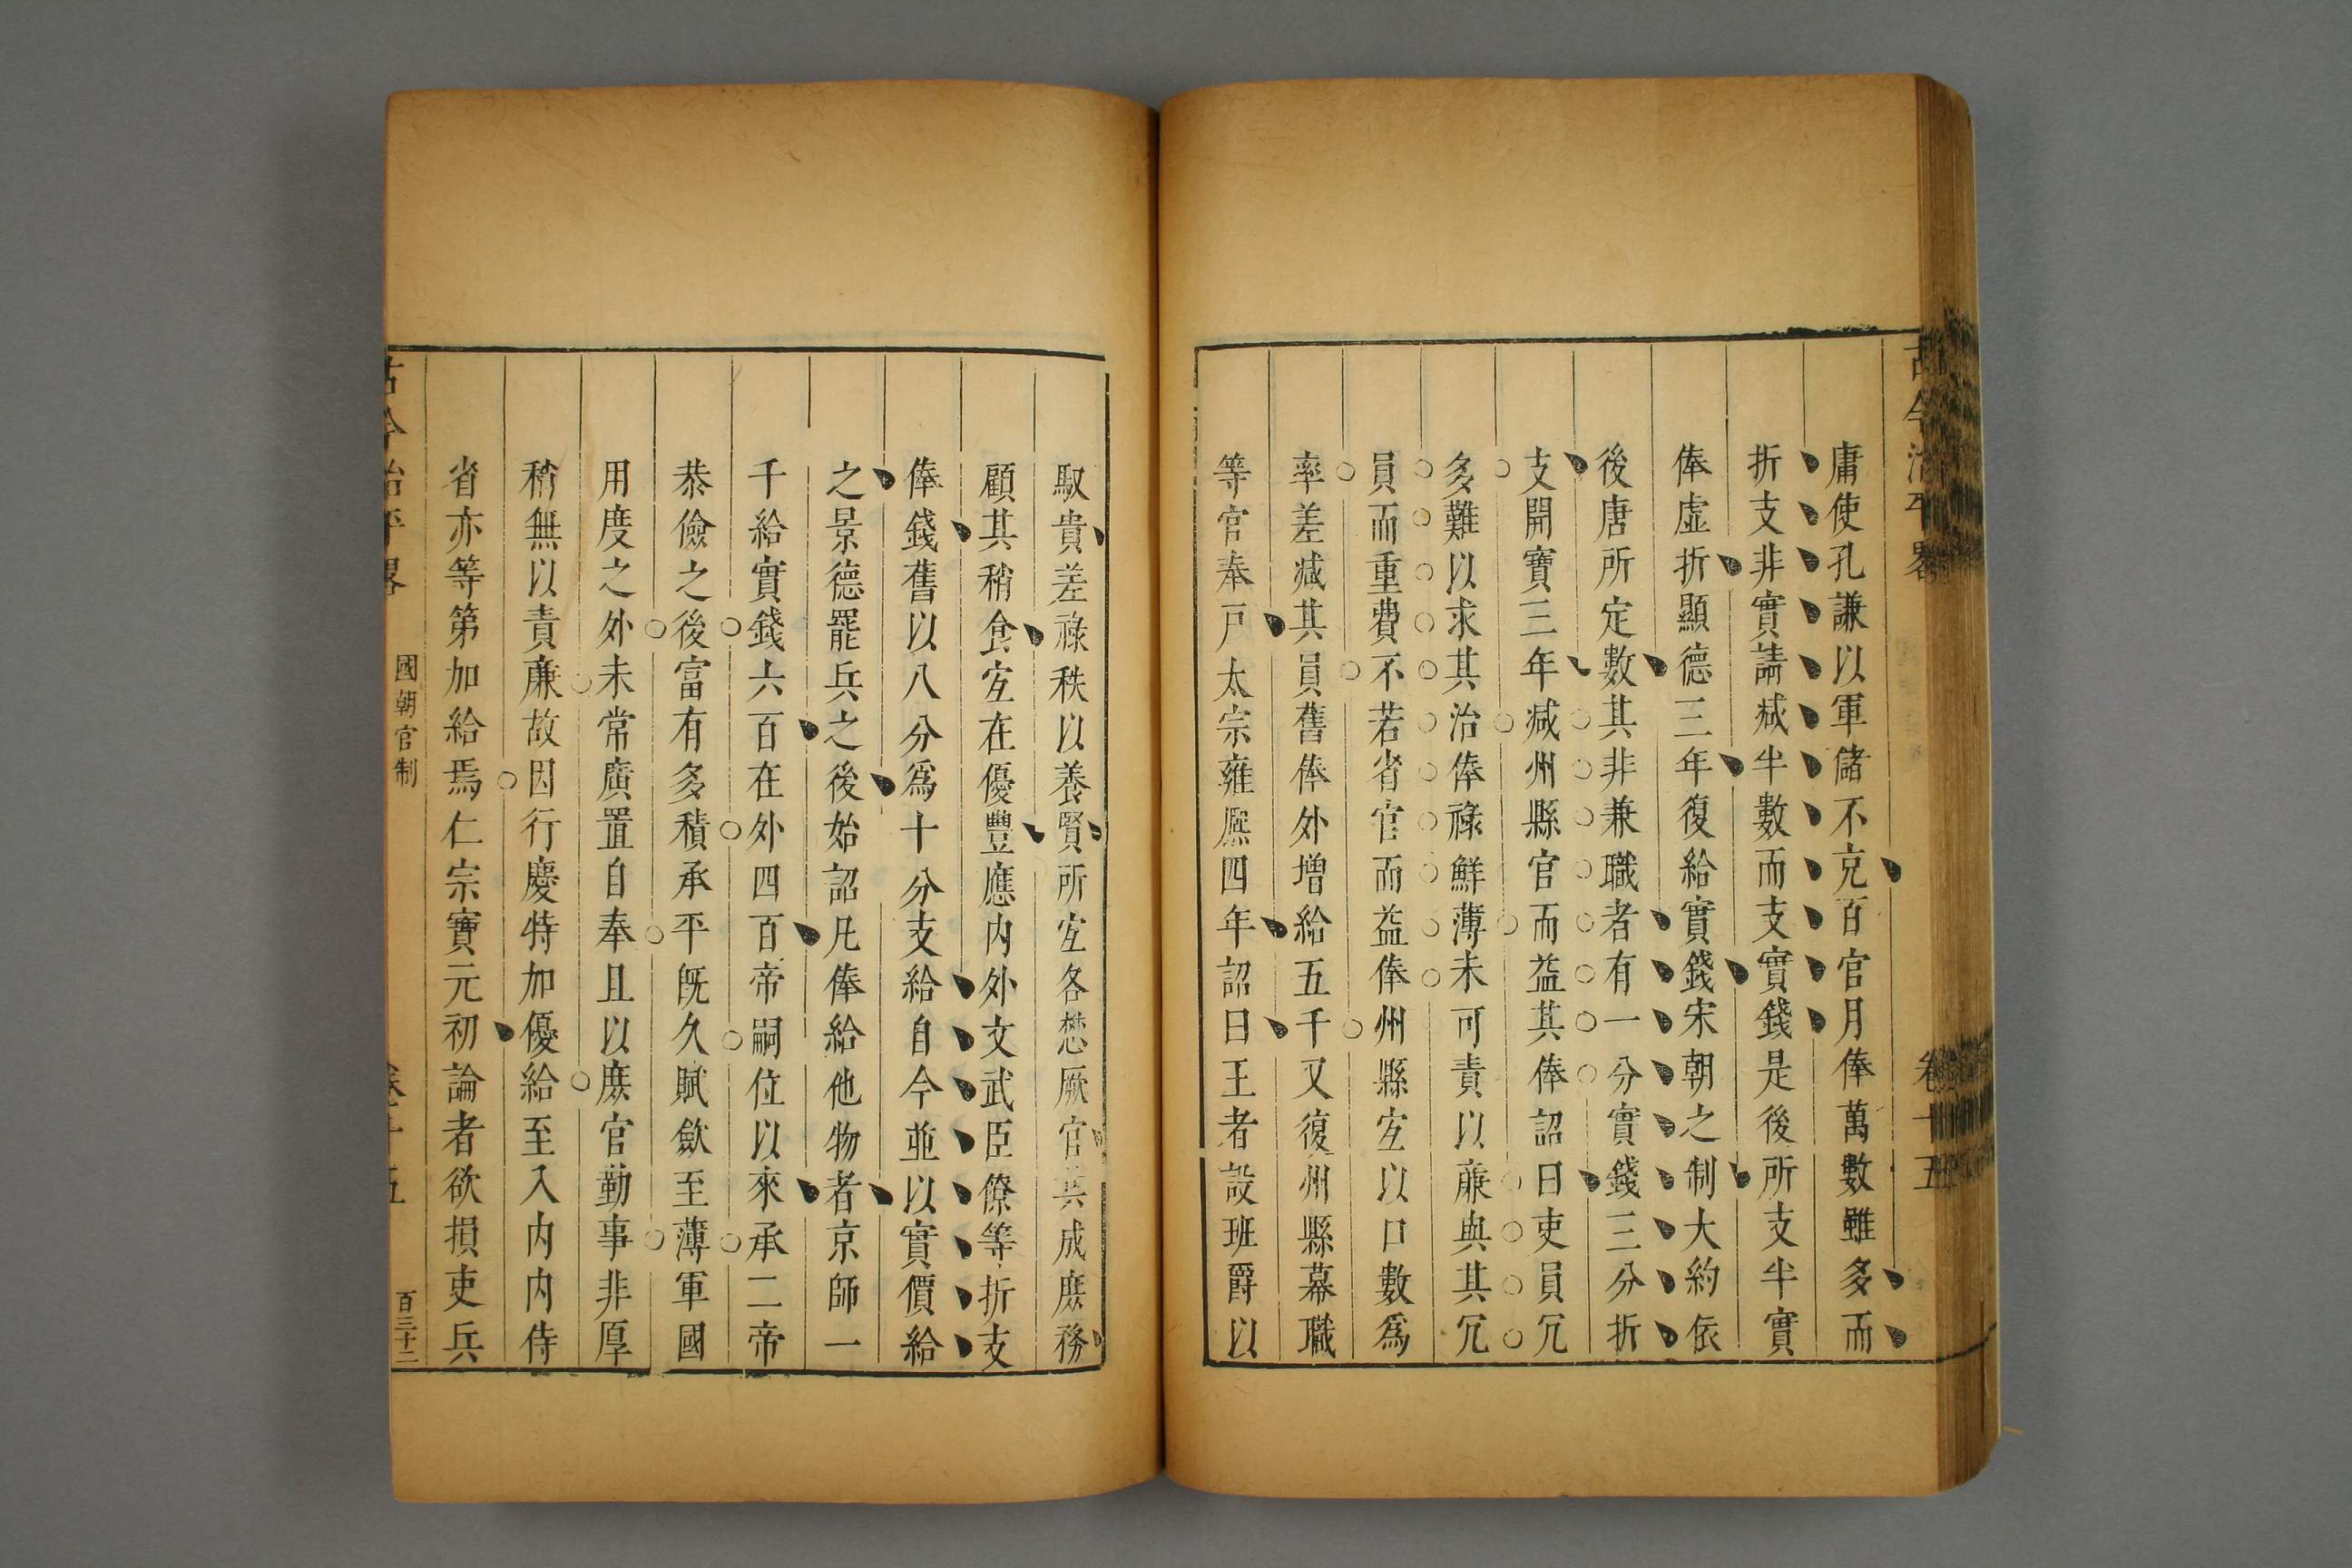 古今治平畧
卷十五
庸使孔謙以軍儲不克百官月俸萬數雖多而
折支非實請减半數而支實錢是後所支半實
俸虛折顯德三年復給實錢宋朝之制大約依
後唐所定數其非兼職者有一分實錢三分折
支開寶三年减州縣官而益其俸詔曰吏員冗
多難以求其治俸祿鮮薄未可責以廉與其冗
員而重費不若省官而益俸州縣宜以口數爲
率差减其員舊俸外增給五千又復州縣幕職
等官奉戸太宗雍熈四年詔曰王者設班爵以
馭貴差祿秩以養賢所宜各懋厥官其成庶務
顧其稍食宜在優豐應内外文武臣僚等折支
俸錢舊以八分爲十分支給自今並以實價給
之景德罷兵之後始詔凡俸給他物者京師一
千給實錢六百在外四百帝嗣位以來承二帝
恭儉之後富有多積承平旣久賦歛至薄軍國
用度之外未常廣置自奉且以庶官勤事非厚
稍無以責廉故因行慶特加優給至入内内侍
省亦等第加給焉仁宗寶元初論者欲損吏兵
古今治平畧
國朝官制
卷十五
百三十二